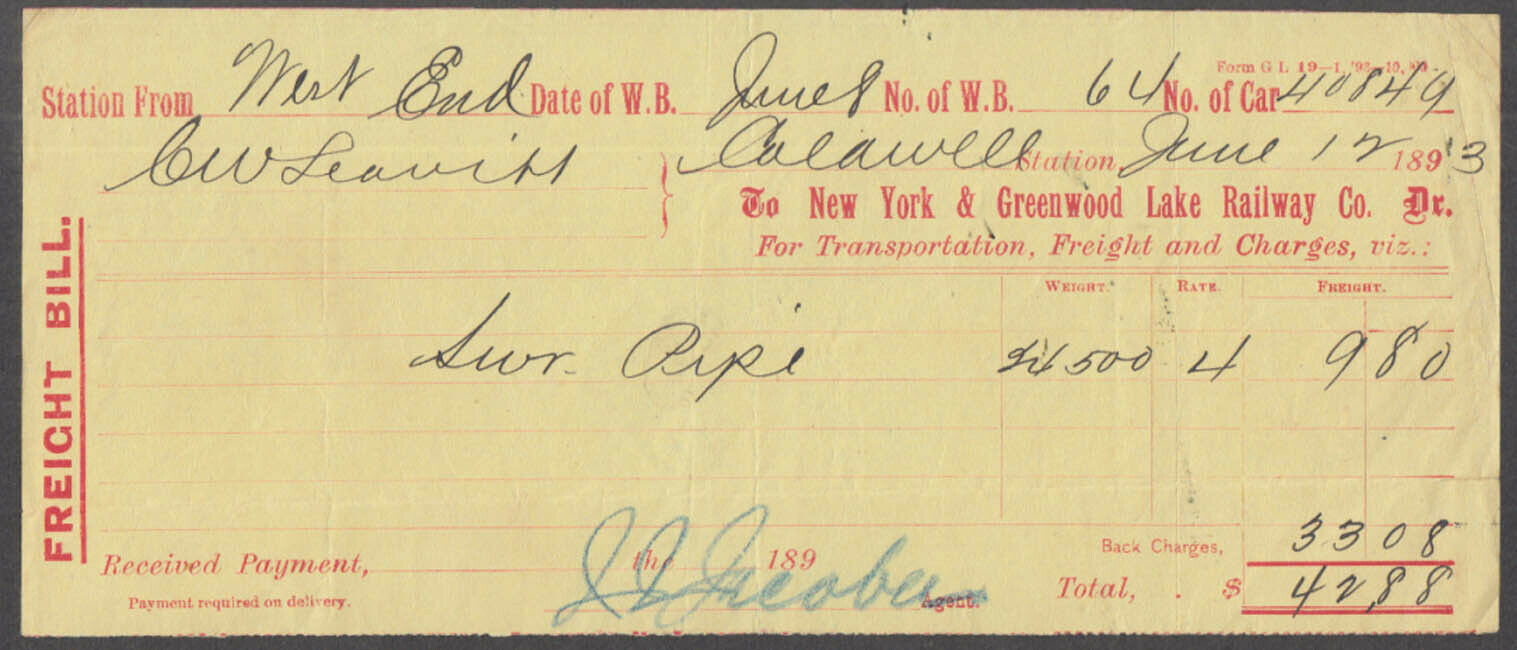 Form G L 19—1, '93—10,
Station From West End Date of W.B. June 8 No. of W.B. 64 No. of Car 40849
C W Leavitt } Caldwell Station, June 12 1893
To New York & Greenwood Lake Railway Co. Dr.
For Transportation, Freight and Charges, viz.:
FREIGHT BILL.
WEIGHT. RATE. FREIGHT.
Swr. Pipe 24500 4 980
Back Charges, 3308
Received Payment, the 189
Total, . $ 42,88
Payment required on delivery. Agent.